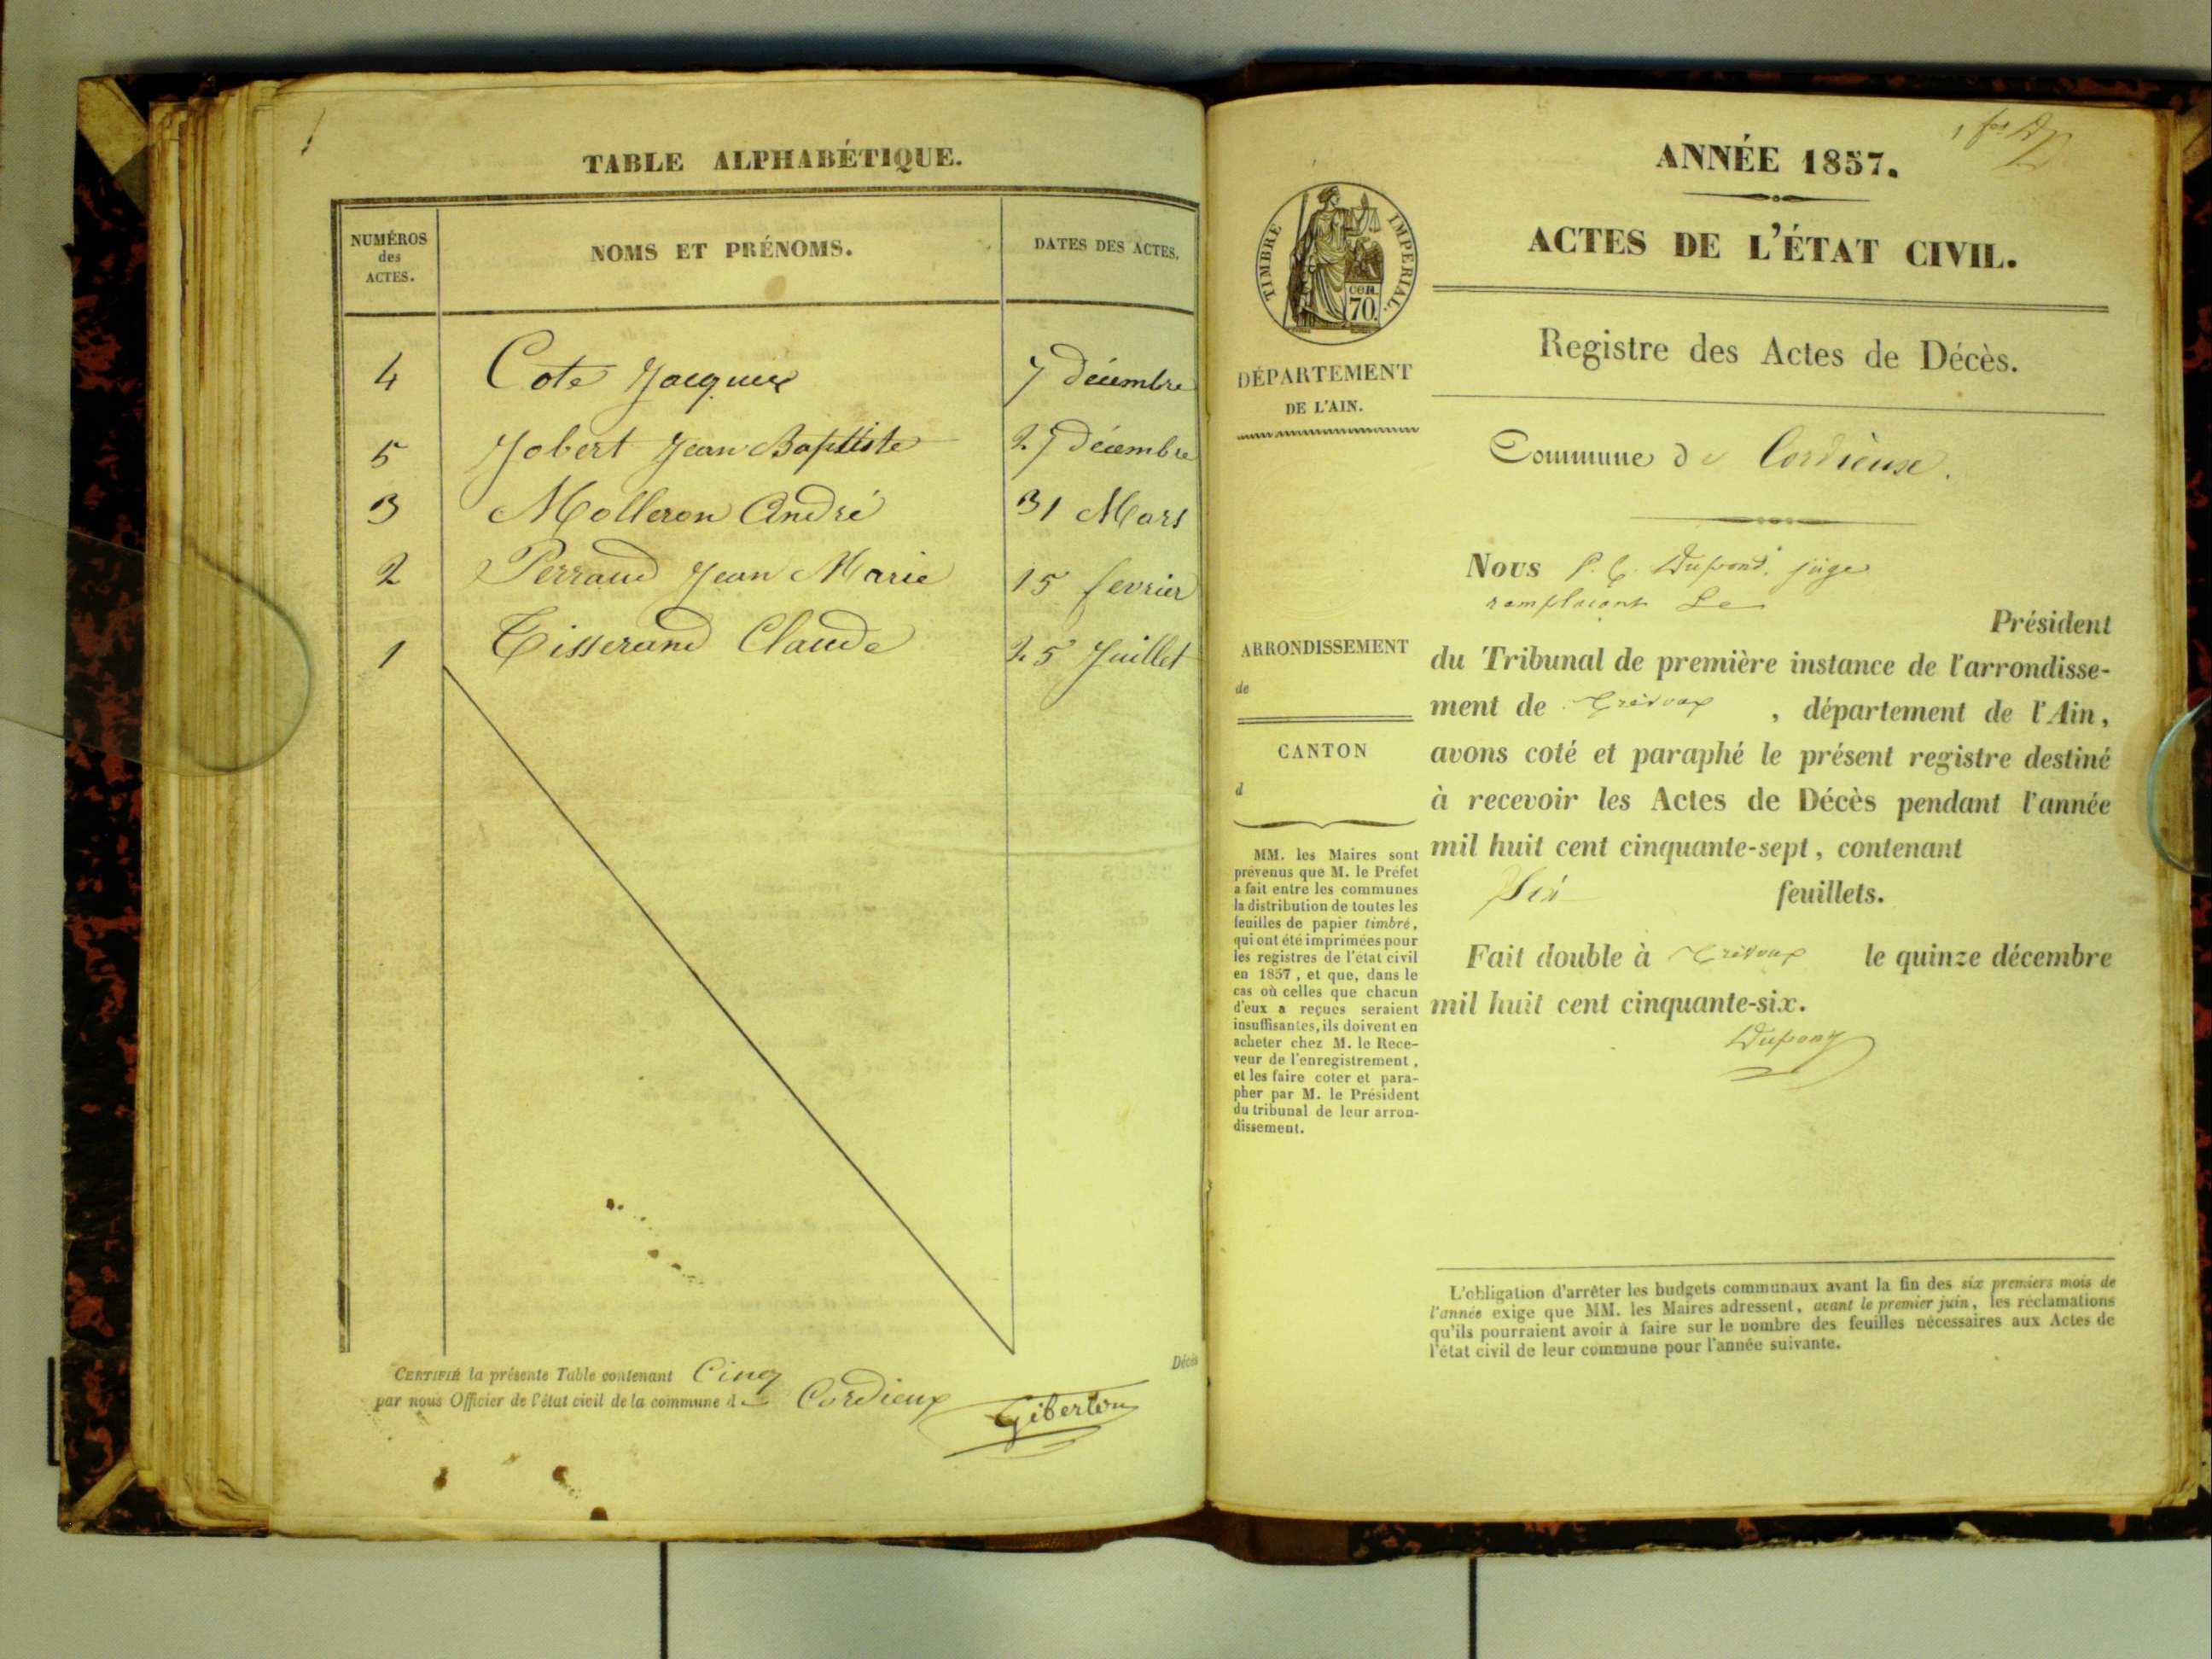 TABLE ALPHABÉTIQUE.
NUMÉROS
des
ACTES.
NOMS ET PRÉNOMS.
DATES DES ACTES.
4 Cote Jacques 7 décembre
5 Jobert Jean Baptiste 27 décembre
3 Molleron André 31 Mars
2 Perraud Jean Marie 15 fevrier
1 Tisserand Claude 25 Juillet
CERTIFIÉ la présente Table contenant Cinq Décès
par nous Officier de l'état civil de la commune de Cordieux
Giberton
ANNÉE 1857.
ACTES DE L'ÉTAT CIVIL.
TIMBRE IMPERIAL.
CEN.
70.
DÉPARTEMENT
DE L'AIN.
Registre des Actes de Décès.
Commune de Cordieux.
Nous Dupond, juge
remplacant Le
Président
du Tribunal de première instance de l'arrondisse-
ment de Trévoux, département de l'Ain,
avons coté et paraphé le présent registre destiné
à recevoir les Actes de Décès pendant l'année
mil huit cent cinquante-sept, contenant
Six feuillets.
Fait double à Trévoux le quinze décembre
mil huit cent cinquante-six.
ARRONDISSEMENT
de
CANTON
d
MM. les Maires sont
prévenus que M. le Préfet
a fait entre les communes
la distribution de toutes les
feuilles de papier timbré,
qui ont été imprimées pour
les registres de l'état civil
en 1857, et que, dans le
cas où celles que chacun
d'eux a reçues seraient
insuffisantes, ils doivent en
acheter chez M. le Rece-
veur de l'enregistrement,
et les faire coter et para-
pher par M. le Président
du tribunal de leur arron-
dissement.
L'obligation d'arrêter les budgets communaux avant la fin des six premiers mois de
l'année exige que MM. les Maires adressent, avant le premier juin, les réclamations
qu'ils pourraient avoir à faire sur le nombre des feuilles nécessaires aux Actes de
l'état civil de leur commune pour l'année suivante.